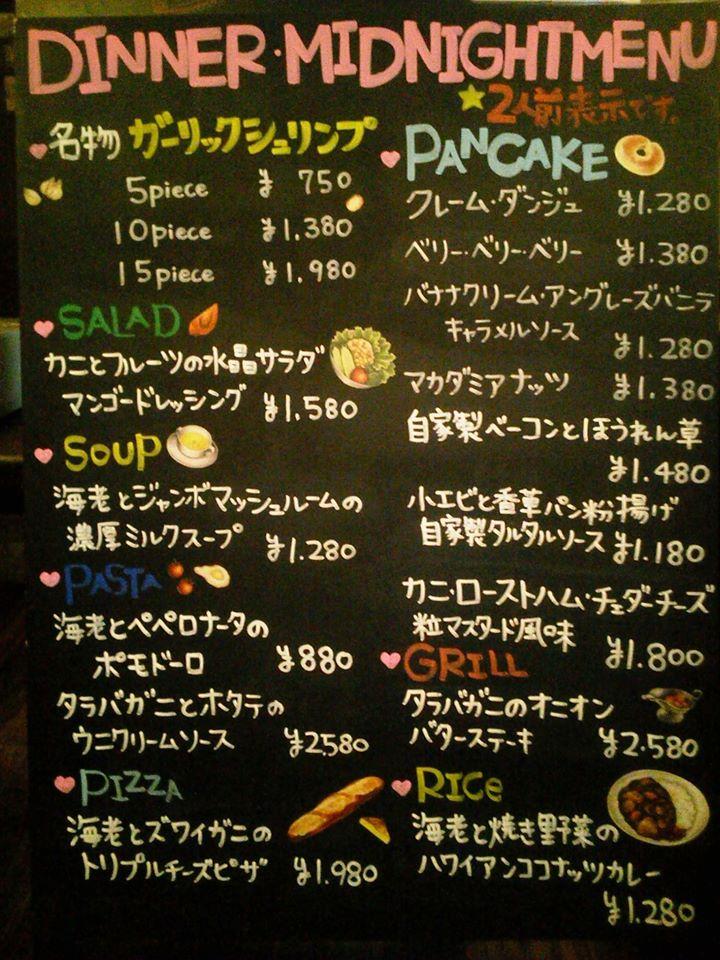 DINNER・MIDNIGHTMENU
★2人前表示です。
名物 ガーリックシュリンプ
5piece ¥750
10piece ¥1.380
15piece ¥1.980
SALAD
カニとフルーツの水晶サラダ
マンゴードレッシング ¥1.580
SOUP
海老とジャンボマッシュルームの
濃厚ミルクスープ ¥1.280
PASTA
海老とペペロナータの
ポモドーロ ¥880
タラバガニとホタテの
ウニクリームソース ¥2580
PIZZA
海老とズワイガニの
トリプルチーズピザ ¥1.980
PANCAKE
クレーム・ダンジュ ¥1.280
ベリー・ベリー・ベリー ¥1.380
バナナクリーム・アングレーズバニラ
キャラメルソース ¥1.280
マカダミアナッツ ¥1.380
自家製ベーコンとほうれん草
¥1.480
小エビと香草パン粉揚げ
自家製タルタルソース ¥1.180
カニ・ローストハム・チェダーチーズ
粒マスタード風味 ¥1.800
GRILL
タラバガニのオニオン
バターステーキ ¥2.580
RICE
海老と焼き野菜の
ハワイアンココナッツカレー
¥1.280